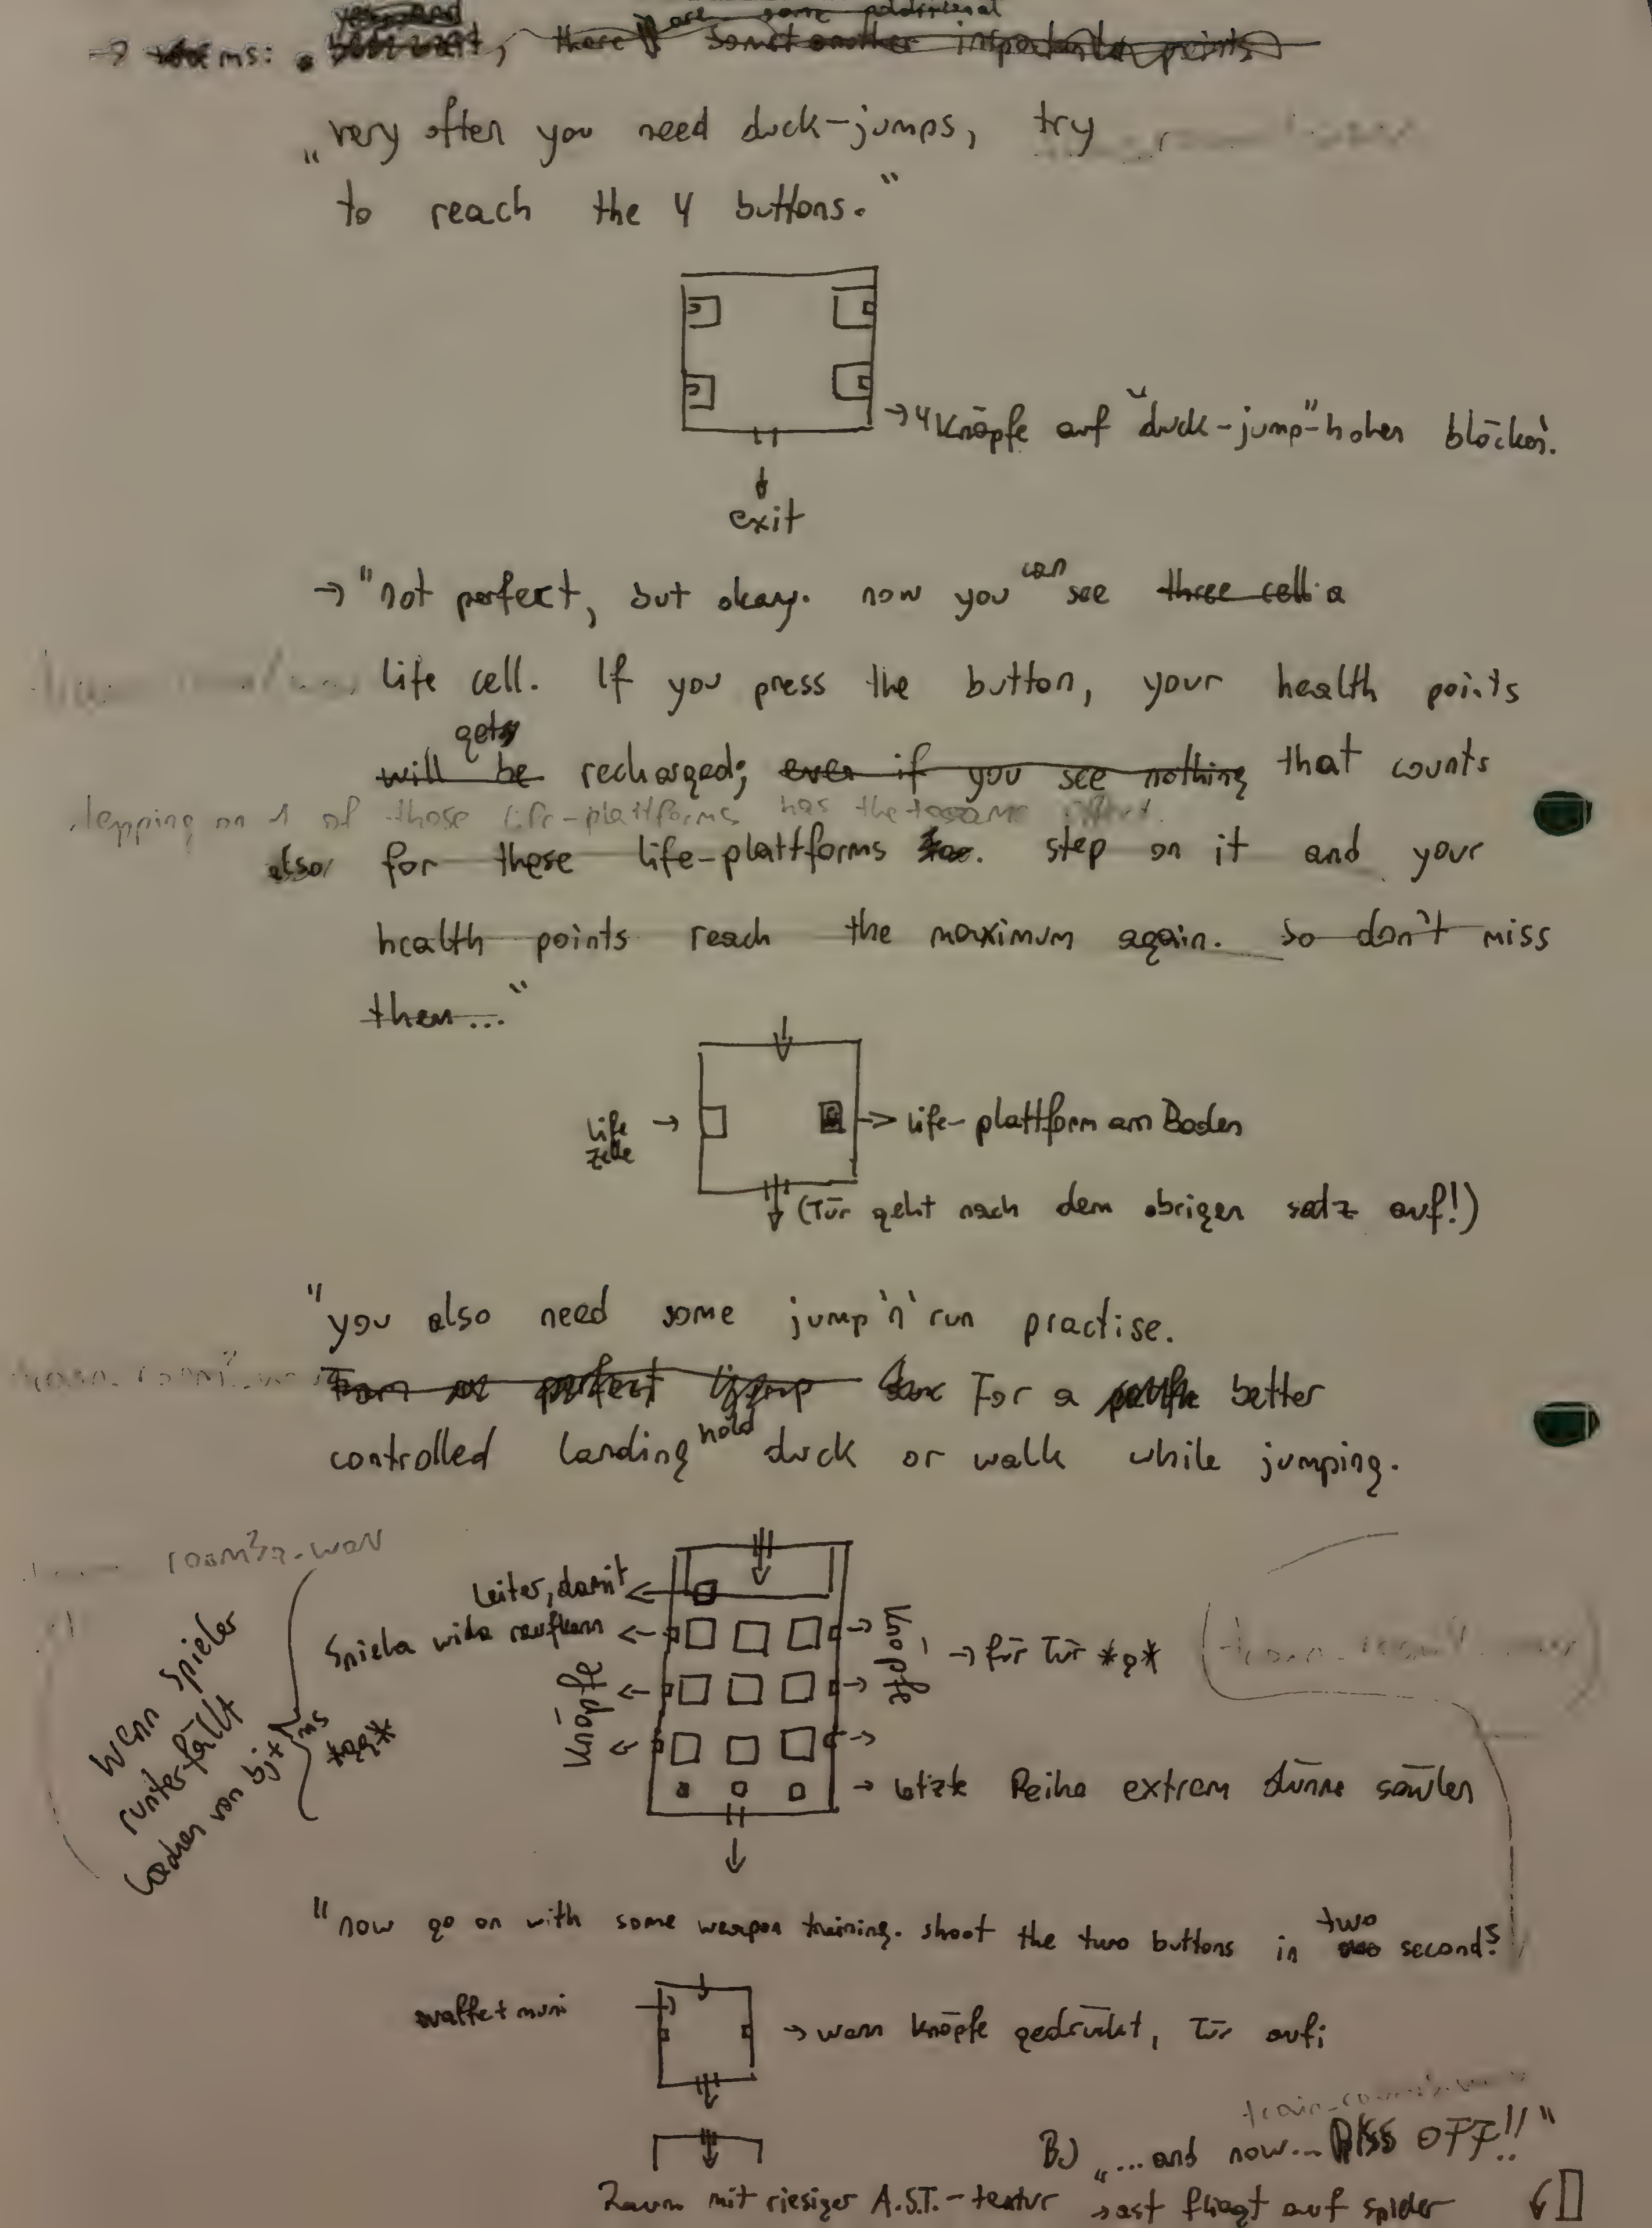 → ms: there are some additional important points
„very often you need duck-jumps, try
to reach the 4 buttons."
→ 4 Knöpfe auf "duck-jump"-hohen blöcken.
exit
→ "not perfect, but okay. now you can see three cell a
life cell. If you press the button, your health points
will be gets recharged; even if you see nothing that counts
stepping on 1 of those life-plattforms has the same effect.
also for these life-plattforms too. step on it and your
health points reach the maximum again. so don't miss
them..."
life zelle →
→ life-plattform am Boden
(Tür geht nach dem obrigen satz auf!)
"you also need some jump 'n' run practise.
perfect jump For a better
controlled landing hold duck or walk while jumping.
room3a.wav
Leiter, damit
Spieler wieder raufkann
Knöpfe
Knöpfe
→ für Tür *g*
wenn Spieler
runterfällt
lachen von bj + ms
*gg*
→ letzte Reihe extrem dünne säulen
"now go on with some weapon training. shoot the two buttons in two seconds
waffe + muni
→ wenn Knöpfe gedrückt, Tür auf;
BJ „...and now... PISS OFF!!"
Raum mit riesiger A.S.T.-textur → ast fliegt auf spieler